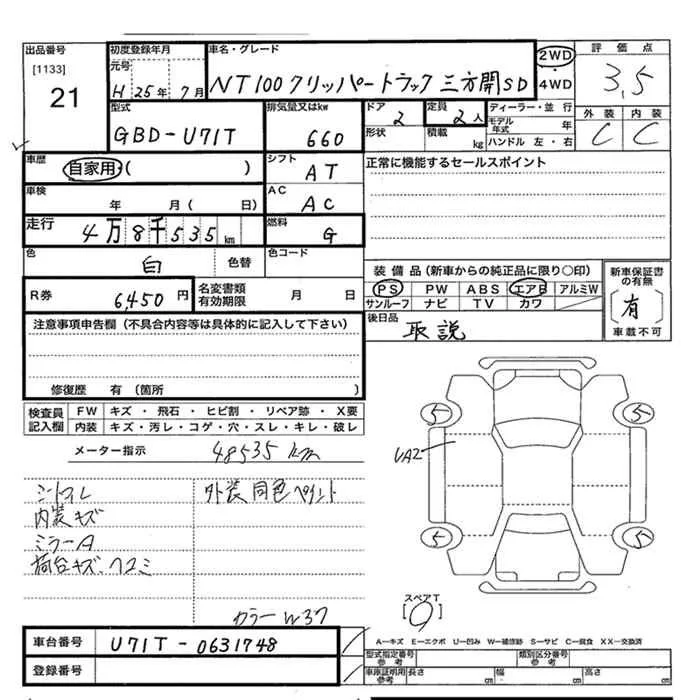 出品番号 初度登録年月 車名・グレード 2WD 評価点
[1133] 元号 NT100クリッパートラック 三方開SD ・ 3,5
21 H 25年 7月 4WD
型式 排気量又はkw ドア 定員 ディーラー・並行 外装 内装
GBD-U71T 660 2 2人 モデル年式 年 C C
形状 積載 kg ハンドル 左・右
車歴 自家用・( ) シフト AT 正常に機能するセールスポイント
車検 年 月( 日) AC AC
走行 4万8千535km 燃料 G
色 白 色替 色コード
装備品(新車からの純正品に限り○印) 新車保証書の有無
R券 6,450円 名変書類有効期限 月 日 PS PW ABS エアB アルミW 有
サンルーフ ナビ TV カワ 車載不可
注意事項申告欄(不具合内容等は具体的に記入して下さい) 後日品 取説
修復歴 有(箇所 )
検査員記入欄 FW キズ・飛石・ヒビ割・リペア跡・X要
内装 キズ・汚レ・コゲ・穴・スレ・キレ・破レ
メーター指示 48535 km
5 5
UA2
シートコレ 外装同色ペイント
内装キズ
ミラーA
荷台キズ、ヘコミ
5 5
スペアT
カラーW37
車台番号 U71T-0631748
A-キズ E-エクボ U-凹み W-補修跡 S-サビ C-腐食 XX-交換済
型式指定番号参考 類別区分番号参考
登録番号 車庫証明用参考 長さ cm 幅 cm 高さ cm